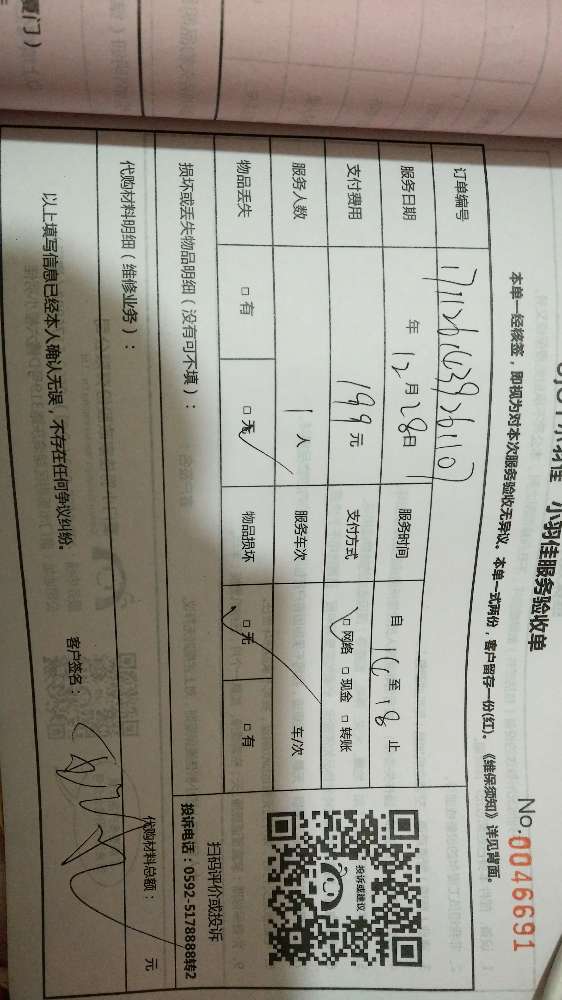 小羽佳 小羽佳服务验收单
No. 0046691
本单一经核签，即视为对本次服务验收无异议。本单一式两份，客户留存一份(红)。《维保须知》详见背面。
订单编号
服务日期 年 12月28日 服务时间 自 16 至 18 止
支付费用 199元 支付方式 □网络 □现金 □转账
服务人数 1人 服务车次 车/次
物品丢失 □有 □无 物品损坏 □无 □有
投诉或建议
扫码评价或投诉
投诉电话：0592-5178888转2
损坏或丢失物品明细（没有可不填）：
代购材料明细（维修业务）：
代购材料总额： 元
以上填写信息已经本人确认无误，不存在任何争议纠纷。 客户签名：
厦门）